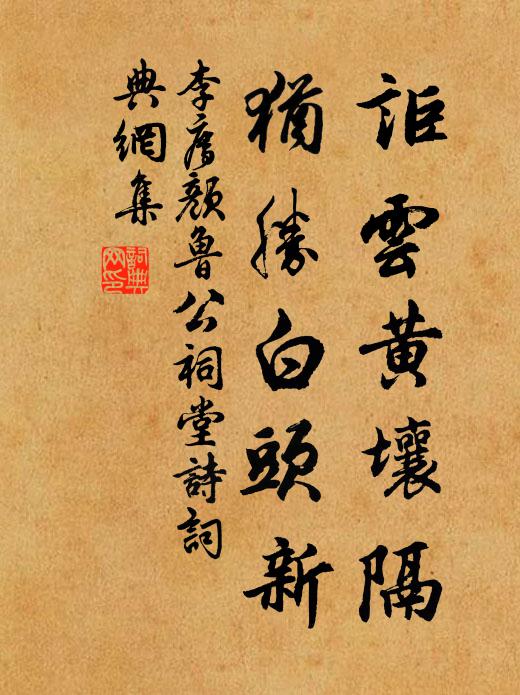 詎雲黃壤隔
猶勝白頭新
李廌顏魯公祠堂詩詞
典網集
詞典
网印